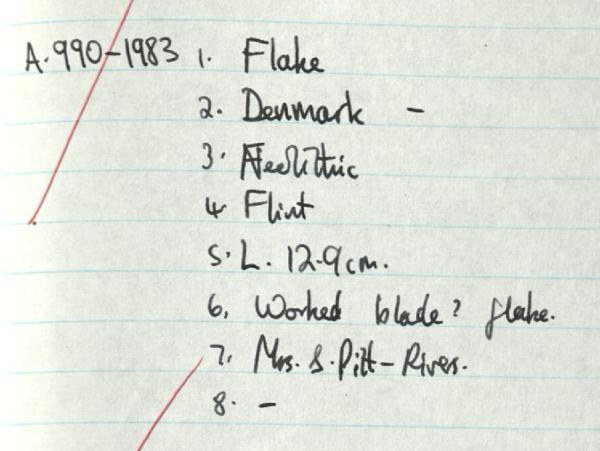 A.990-1983 1. Flake
2. Denmark -
3. Neolithic
4 Flint
5. L. 12.9cm.
6, Worked blade? flake.
7, Mrs. S. Pitt-Rivers.
8. -